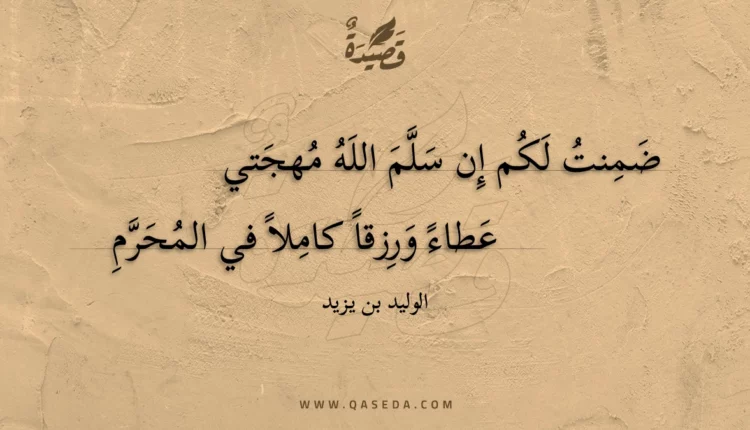 قَصِيدَةٌ
ضَمِنتُ لَكُم إِن سَلَّمَ اللَهُ مُهجَتي
عَطاءً وَرِزقاً كامِلاً في المُحَرَّمِ
الوليد بن يزيد
WWW.QASEDA.COM